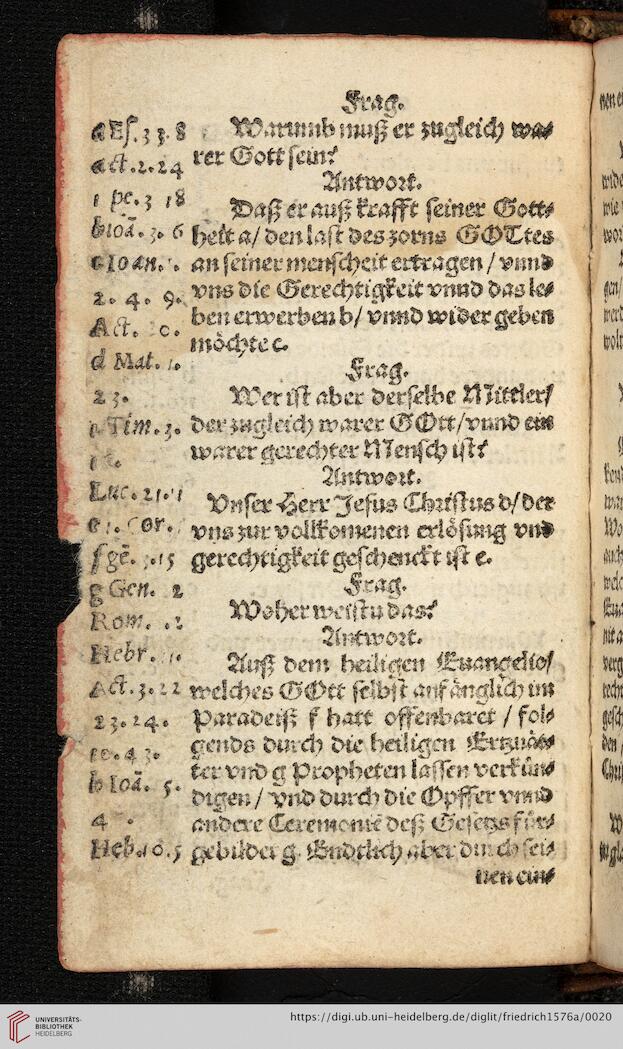 Frag.
Warumb muß er zugleich wa⸗
rer Gott sein?
Antwort.
Daß er auß krafft seiner Gott⸗
heit a/ den last des zorns GOTtes
an seiner menscheit ertragen / vnnd
vns die Gerechtigkeit vnnd das le⸗
ben erwerben b/ vnnd wider geben
möchte c.
Frag.
Wer ist aber derselbe Mittler/
der zugleich warer GOtt/vnnd ein
warer gerechter Mensch ist?
Antwort.
Vnser Herr Jesus Christus d/der
vns zur vollkomenen erlösung vnd
gerechtigkeit geschenckt ist e.
Frag.
Woher weistu das?
Antwort.
Auß dem heiligen Euangelio/
welches GOtt selbst anfänglich im
Paradeiß f hatt offenbaret / fol⸗
gends durch die heiligen Ertzuä⸗
ter vnd g Propheten lassen verkün⸗
digen / vnd durch die Opffer vnnd
andere Ceremoniē deß Gesetzs für⸗
gebildet g. Endtlich aber durch sei⸗
nen ein⸗
a Es. 33. 8
act. 2. 24
1 pe. 3 18
b ioā. 3. 6
c Ioan.
2. 4. 9.
Act.
d Mat. 1.
23.
Tim. 3.
Luc. 2.
Cor.
f gē. 3.15
g Gen. 2
Rom.
Hebr. 1.
Act. 3. 22
23. 24.
10. 43.
h Ioā. 5.
4
Heb. 10. 5
UNIVERSITÄTS-
BIBLIOTHEK
HEIDELBERG
https://digi.ub.uni-heidelberg.de/diglit/friedrich1576a/0020